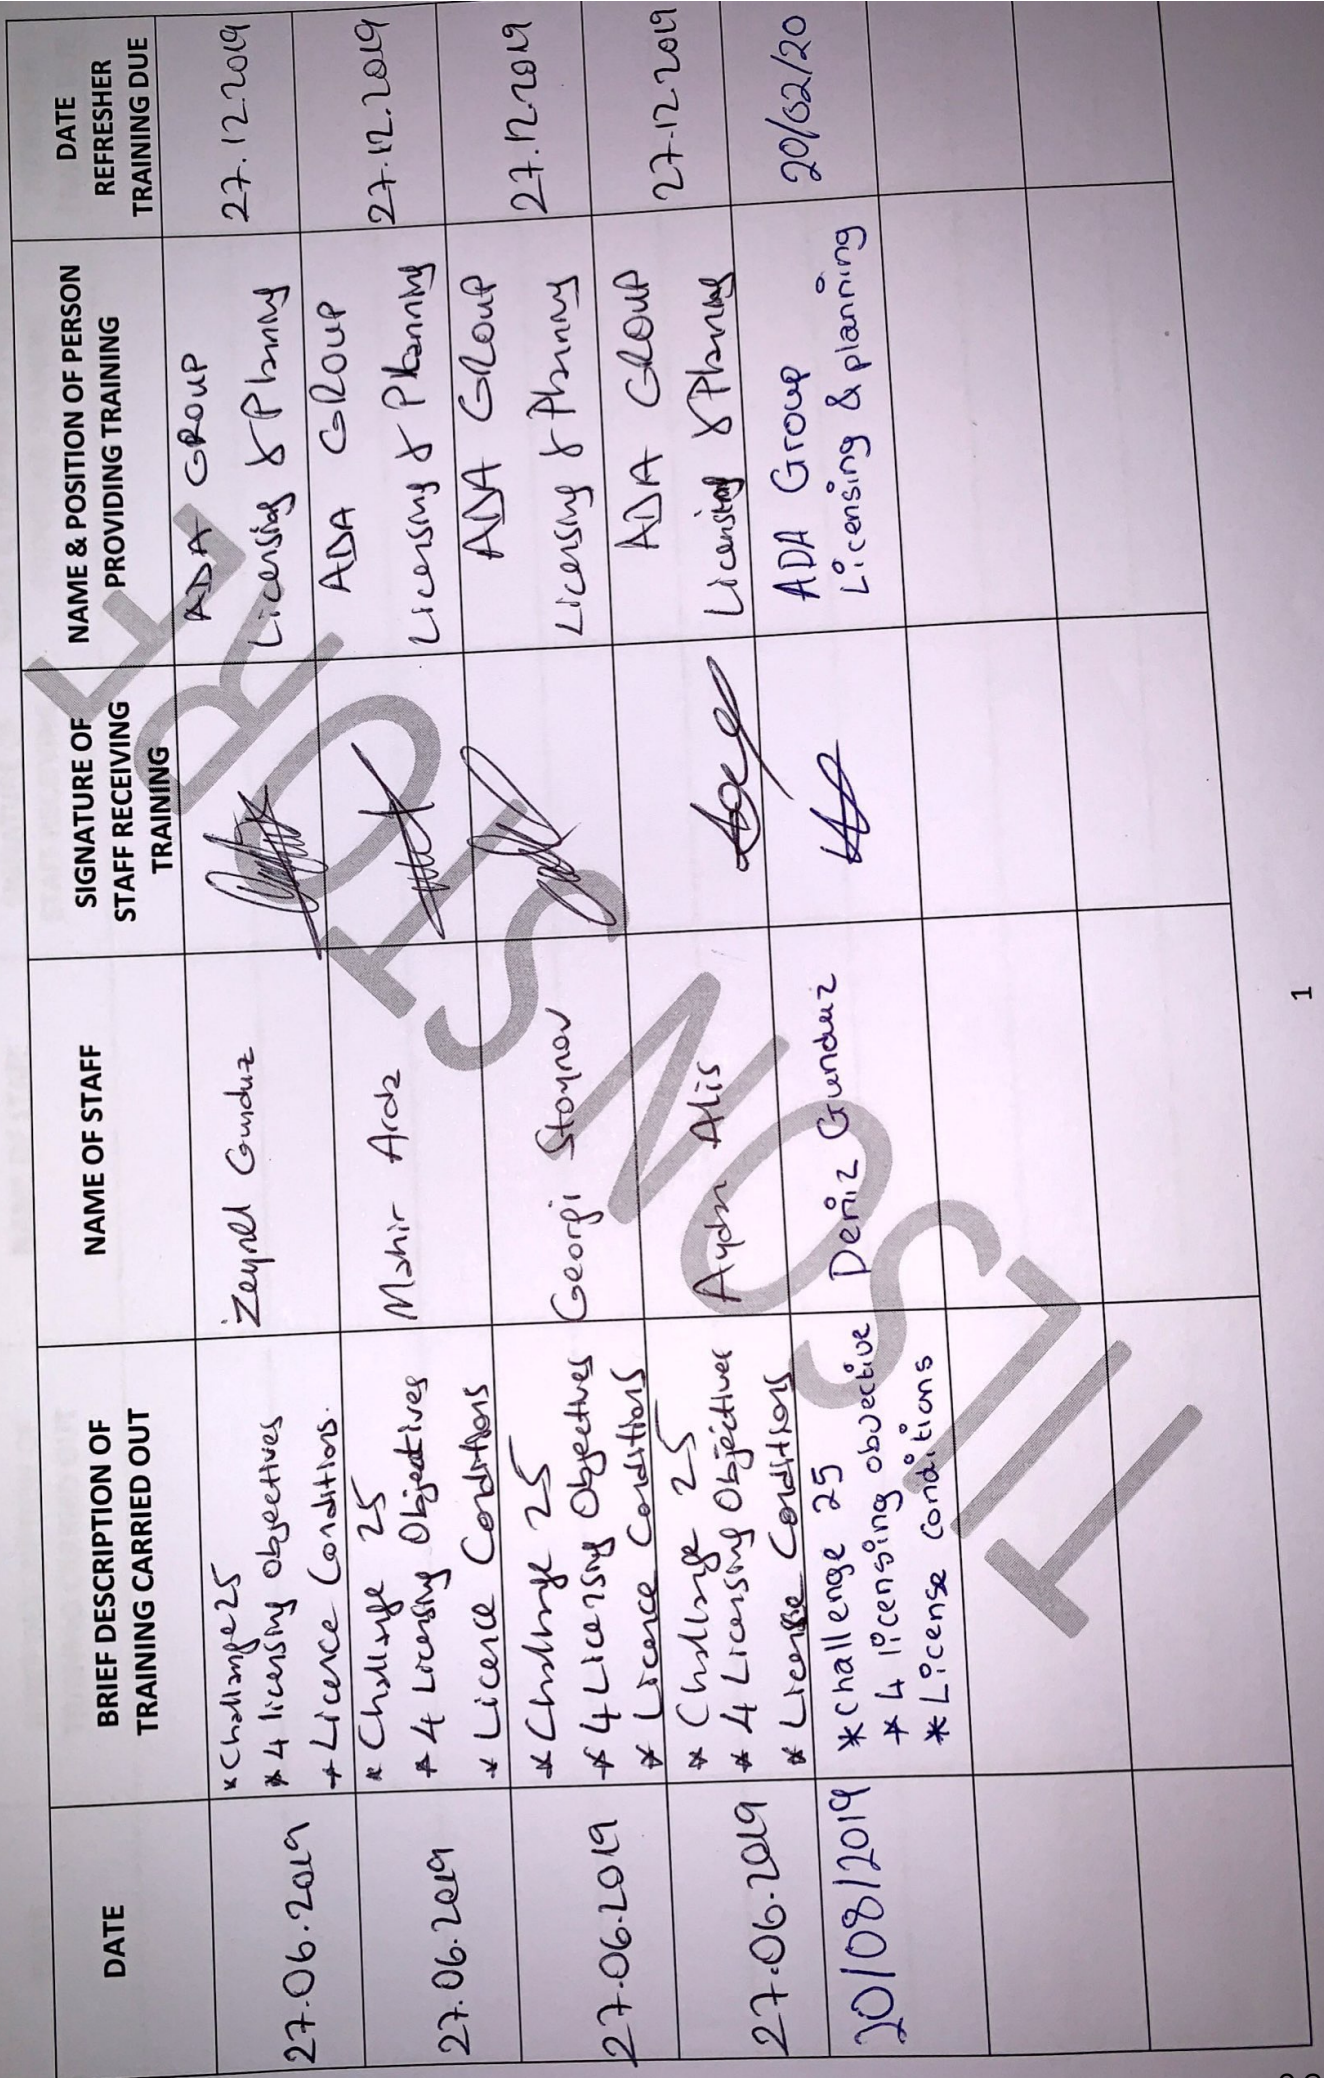 DATE
BRIEF DESCRIPTION OF
TRAINING CARRIED OUT
NAME OF STAFF
SIGNATURE OF
STAFF RECEIVING
TRAINING
NAME & POSITION OF PERSON
PROVIDING TRAINING
DATE
REFRESHER
TRAINING DUE
27.06.2019
* Challange 25
* 4 licensing Objectives
* Licence Conditions.
Zeynel Gunduz
ADA GROUP
Licensing & Planning
27.12.2019
27.06.2019
* Challange 25
* 4 Licensing Objectives
* Licence Conditions
Mahir
ADA GROUP
Licensing & Planning
27.12.2019
27.06.2019
* Challange 25
* 4 Licensing Objectives
* Licence Conditions
Georgi Stoynov
ADA GROUP
Licensing & Planning
27.12.2019
27.06.2019
* Challange 25
* 4 Licensing Objectives
* License Conditions
Aydin Alis
ADA GROUP
Licensing & Planning
27.12.2019
20/08/2019
* challenge 25
* 4 licensing objective
* License conditions
Deniz Gunduz
ADA Group
Licensing & planning
20/02/20
TILSON SHORT
1